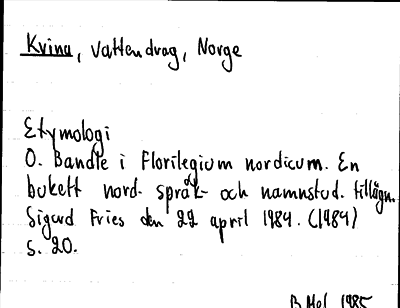 Kvina, Vattendrag, Norge
Etymologi
O. Bandle i Florilegium nordicum. En
bukett nord- språk- och namnstud. tillägn.
Sigurd Fries den 22 april 1984. (1984)
s. 20.
B Mel 1985